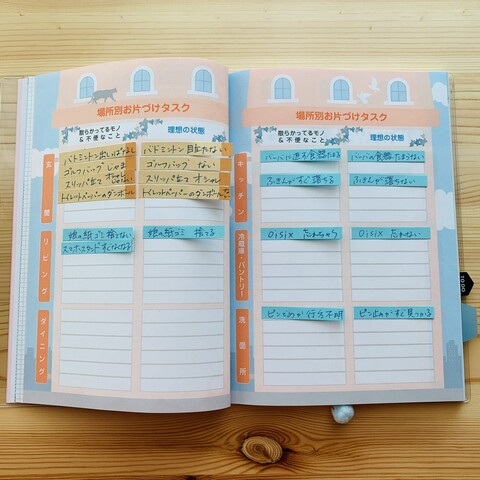 場所別お片づけタスク
散らかってるモノ
&不便なこと
理想の状態
玄関
バドミントン出しっぱなし
バドミントン 目立たない
ゴルフバッグ じゃま
ゴルフバッグ ない
スリッパ立て
スリッパ立て オシャレ
トイレットペーパーのダンボール
トイレットペーパーのダンボール
リビング
娘の紙ゴミ 捨てない
娘の紙ゴミ 捨てる
スマホスタンド すぐなくなる
ダイニング
場所別お片づけタスク
散らかってるモノ
&不便なこと
理想の状態
キッチン
食器たまる
食器たまらない
ふきんがすぐ落ちる
ふきんが落ちない
冷蔵庫・パントリー
Oisix 忘れちゃう
Oisix 忘れない
洗面所
ピン止めが行方不明
ピン止めがすぐ見つかる